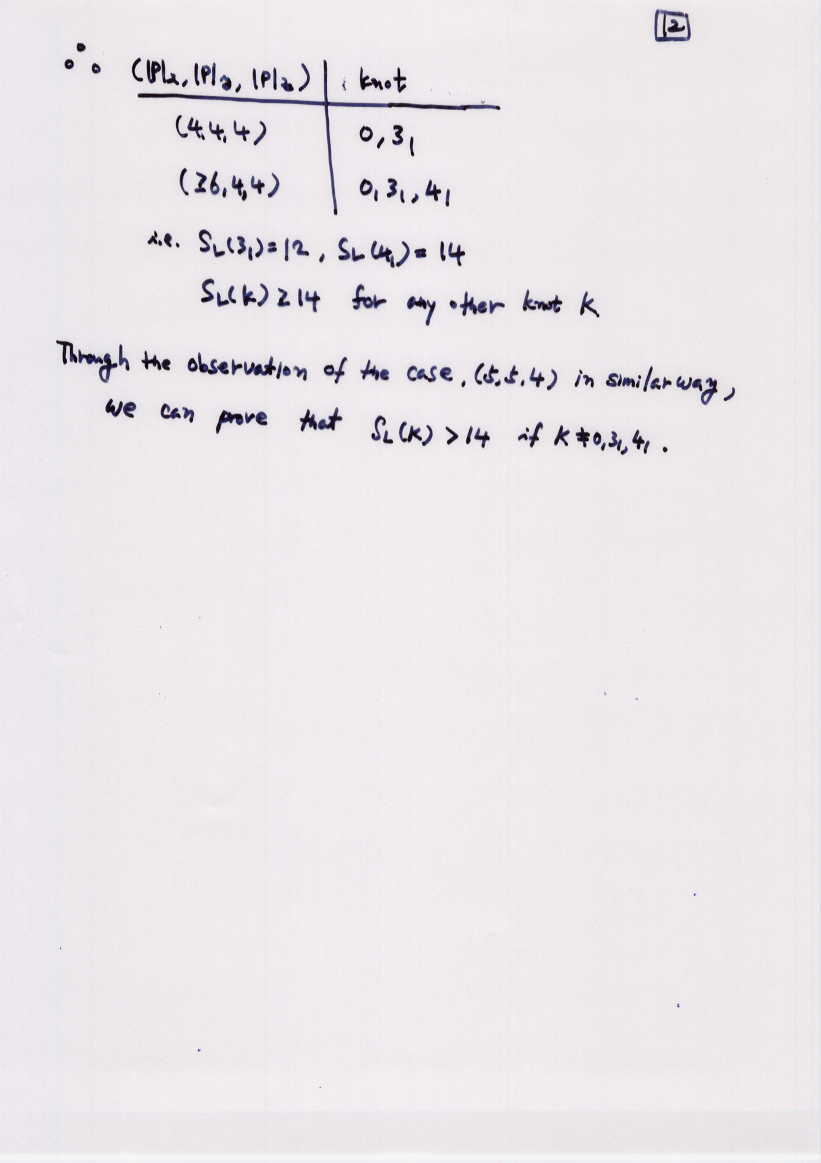 12
∴ (|P|x, |P|y, |P|z) | knot
(4,4,4) | 0, 3₁
(≥6,4,4) | 0, 3₁, 4₁
i.e. S_L(3₁)=12, S_L(4₁)=14
S_L(K)≥14 for any other knot K
Through the observation of the case, (5,5,4) in similar way,
we can prove that S_L(K)>14 if K≠0,3₁,4₁.